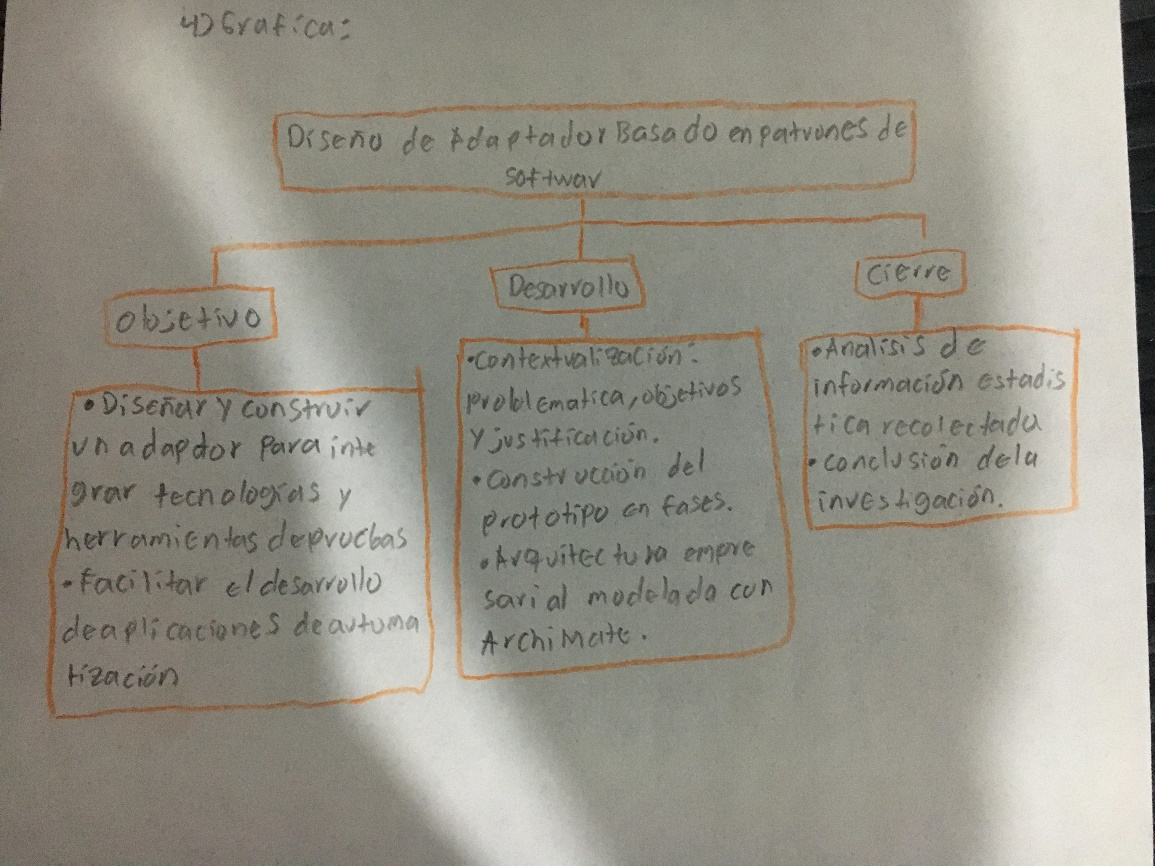 4) Grafica:
Diseño de Adaptador Basado en patrones de
softwar
Objetivo
• Diseñar y construir
un adapdor para inte
grar tecnologías y
herramientas de pruebas
• Facilitar el desarrollo
de aplicaciones de automa
tización
Desarrollo
• Contextualización:
problematica, objetivos
y justificación.
• Construcción del
prototipo en fases.
• Arquitectura empre
sarial modelada con
ArchiMate.
Cierre
• Analisis de
información estadis
tica recolectada
• conclusión de la
investigación.